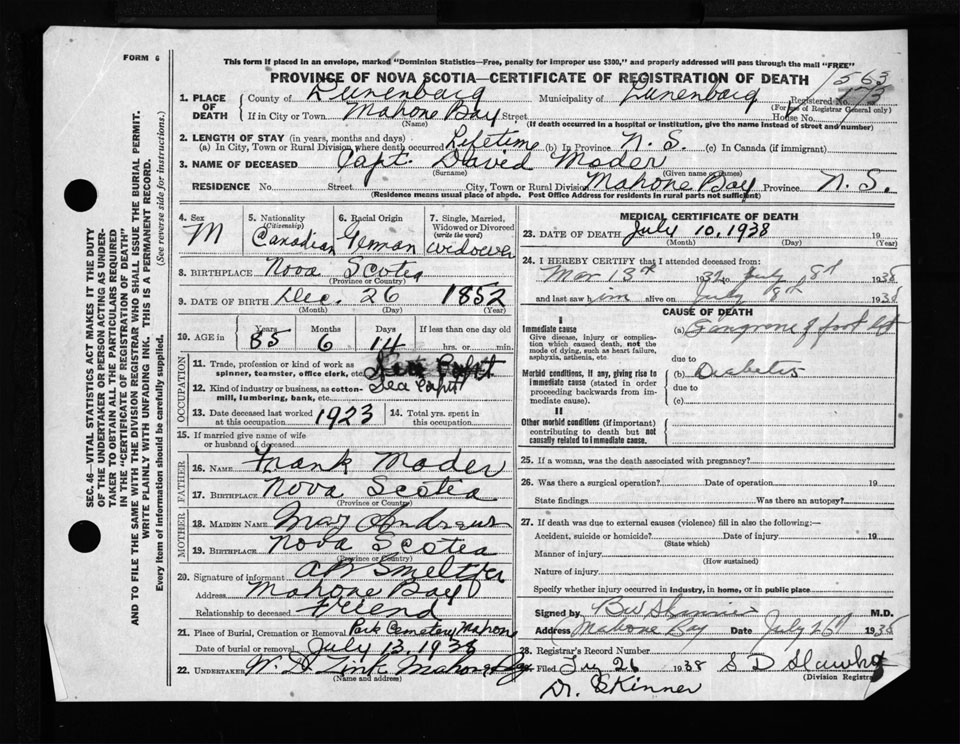 FORM 6
This form if placed in an envelope, marked "Dominion Statistics—Free, penalty for improper use $300," and properly addressed will pass through the mail "FREE"
PROVINCE OF NOVA SCOTIA—CERTIFICATE OF REGISTRATION OF DEATH
1. PLACE OF DEATH
County of Lunenbarg Municipality of Lunenbarg Registered No.
563
173
(For use of Registrar General only)
If in City or Town Mahone Bay Street House No.
(Name) (If death occurred in a hospital or institution, give the name instead of street and number)
2. LENGTH OF STAY (in years, months and days)
(a) In City, Town or Rural Division where death occurred Lifetime (b) In Province N. S. (c) In Canada (if immigrant)
3. NAME OF DECEASED Capt. David Mader
(Surname) (Given name or names)
RESIDENCE No. Street City, Town or Rural Division Mahone Bay Province N. S.
(Residence means usual place of abode. Post Office Address for residents in rural parts not sufficient)
4. Sex M
5. Nationality (Citizenship) Canadian
6. Racial Origin German
7. Single, Married, Widowed or Divorced (write the word) widower
8. BIRTHPLACE Nova Scotea
(Province or Country)
9. DATE OF BIRTH Dec. 26 1852
(Month) (Day) (Year)
10. AGE in Years 85 Months 6 Days 14 If less than one day old hrs. or min.
OCCUPATION
11. Trade, profession or kind of work as spinner, teamster, office clerk, etc.
12. Kind of industry or business, as cotton-mill, lumbering, bank, etc. Sea Capt
13. Date deceased last worked at this occupation 1923
14. Total yrs. spent in this occupation
15. If married give name of wife or husband of deceased
FATHER
16. NAME Frank Mader
17. BIRTHPLACE Nova Scotea
(Province or Country)
MOTHER
18. MAIDEN NAME Mary Andrews
19. BIRTHPLACE Nova Scotea
(Province or Country)
20. Signature of informant Smeltzer
Address Mahone Bay
Relationship to deceased Friend
21. Place of Burial, Cremation or Removal Park Cemetery Mahone
Date of burial or removal July 13, 1938
22. UNDERTAKER Mahone Bay
(Name and address)
MEDICAL CERTIFICATE OF DEATH
23. DATE OF DEATH July 10, 1938 19
(Month) (Day) (Year)
24. I HEREBY CERTIFY that I attended deceased from:
Mar 13th 1932 to July 8th 1938
and last saw him alive on July 8th 1938
CAUSE OF DEATH
I
Immediate cause
Give disease, injury or complication which caused death, not the mode of dying, such as heart failure, asphyxia, asthenia, etc
(a) Gangrene of foot left
due to
Morbid conditions, if any, giving rise to immediate cause (stated in order proceeding backwards from immediate cause).
(b) Diabetes
due to
(c)
II
Other morbid conditions (if important) contributing to death but not causally related to immediate cause.
25. If a woman, was the death associated with pregnancy?
26. Was there a surgical operation? Date of operation 19
State findings Was there an autopsy?
27. If death was due to external causes (violence) fill in also the following:—
Accident, suicide or homicide? Date of injury 19
(State which)
Manner of injury
(How sustained)
Nature of injury
Specify whether injury occurred in industry, in home, or in public place
Signed by M.D.
Address Mahone Bay Date July 26 1938
28. Registrar's Record Number
Filed 26 1938
(Division Registrar)
Dr. Skinner
SEC. 46—VITAL STATISTICS ACT MAKES IT THE DUTY
OF THE UNDERTAKER OR PERSON ACTING AS UNDER-
TAKER TO OBTAIN ALL THE PARTICULARS REQUIRED
IN THE "CERTIFICATE OF REGISTRATION OF DEATH"
AND TO FILE THE SAME WITH THE DIVISION REGISTRAR WHO SHALL ISSUE THE BURIAL PERMIT.
WRITE PLAINLY WITH UNFADING INK. THIS IS A PERMANENT RECORD.
Every item of information should be carefully supplied. (See reverse side for instructions.)